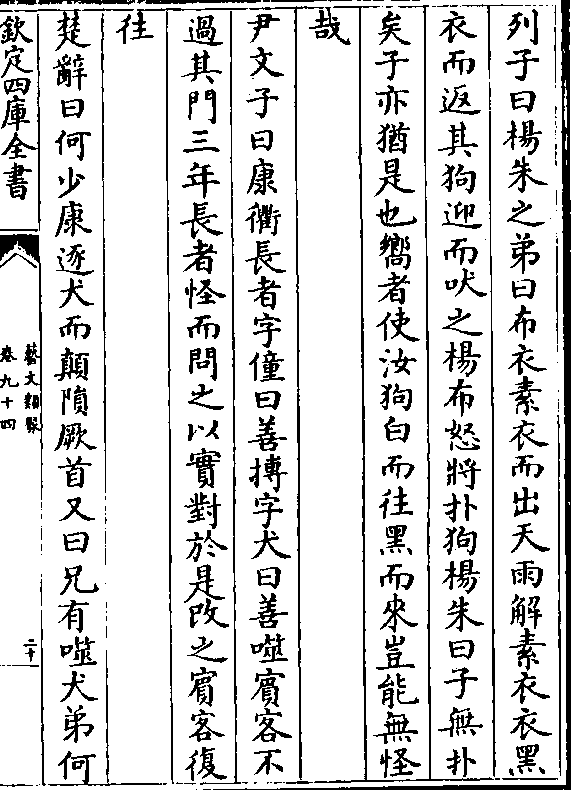 列子曰楊朱之弟曰布衣素衣而出天雨解素衣衣黑
衣而返其狗迎而吠之楊布怒將扑狗楊朱曰子無扑
矣子亦猶是也嚮者使汝狗白而往黑而來豈能無怪
哉
尹文子曰康衢長者字僮曰善搏字犬曰善噬賓客不
過其門三年長者怪而問之以實對於是改之賓客復
往
楚辭曰何少康逐犬而顛隕厥首又曰兄有噬犬弟何
欽定四庫全書
藝文類聚
卷九十四
二十